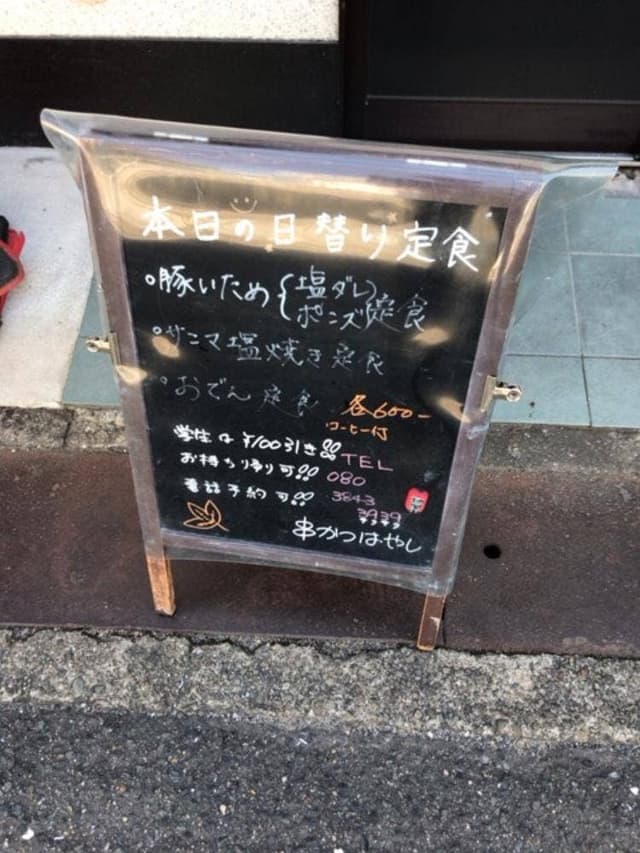 本日の日替り定食
豚いため{塩ダレ ポンズ}定食
サンマ塩焼き定食
おでん定食
各600-
コーヒー付
学生は¥100引き!!
お持ち帰り可!!
電話予約可!!
TEL
080
3843
3939
串かつはやし